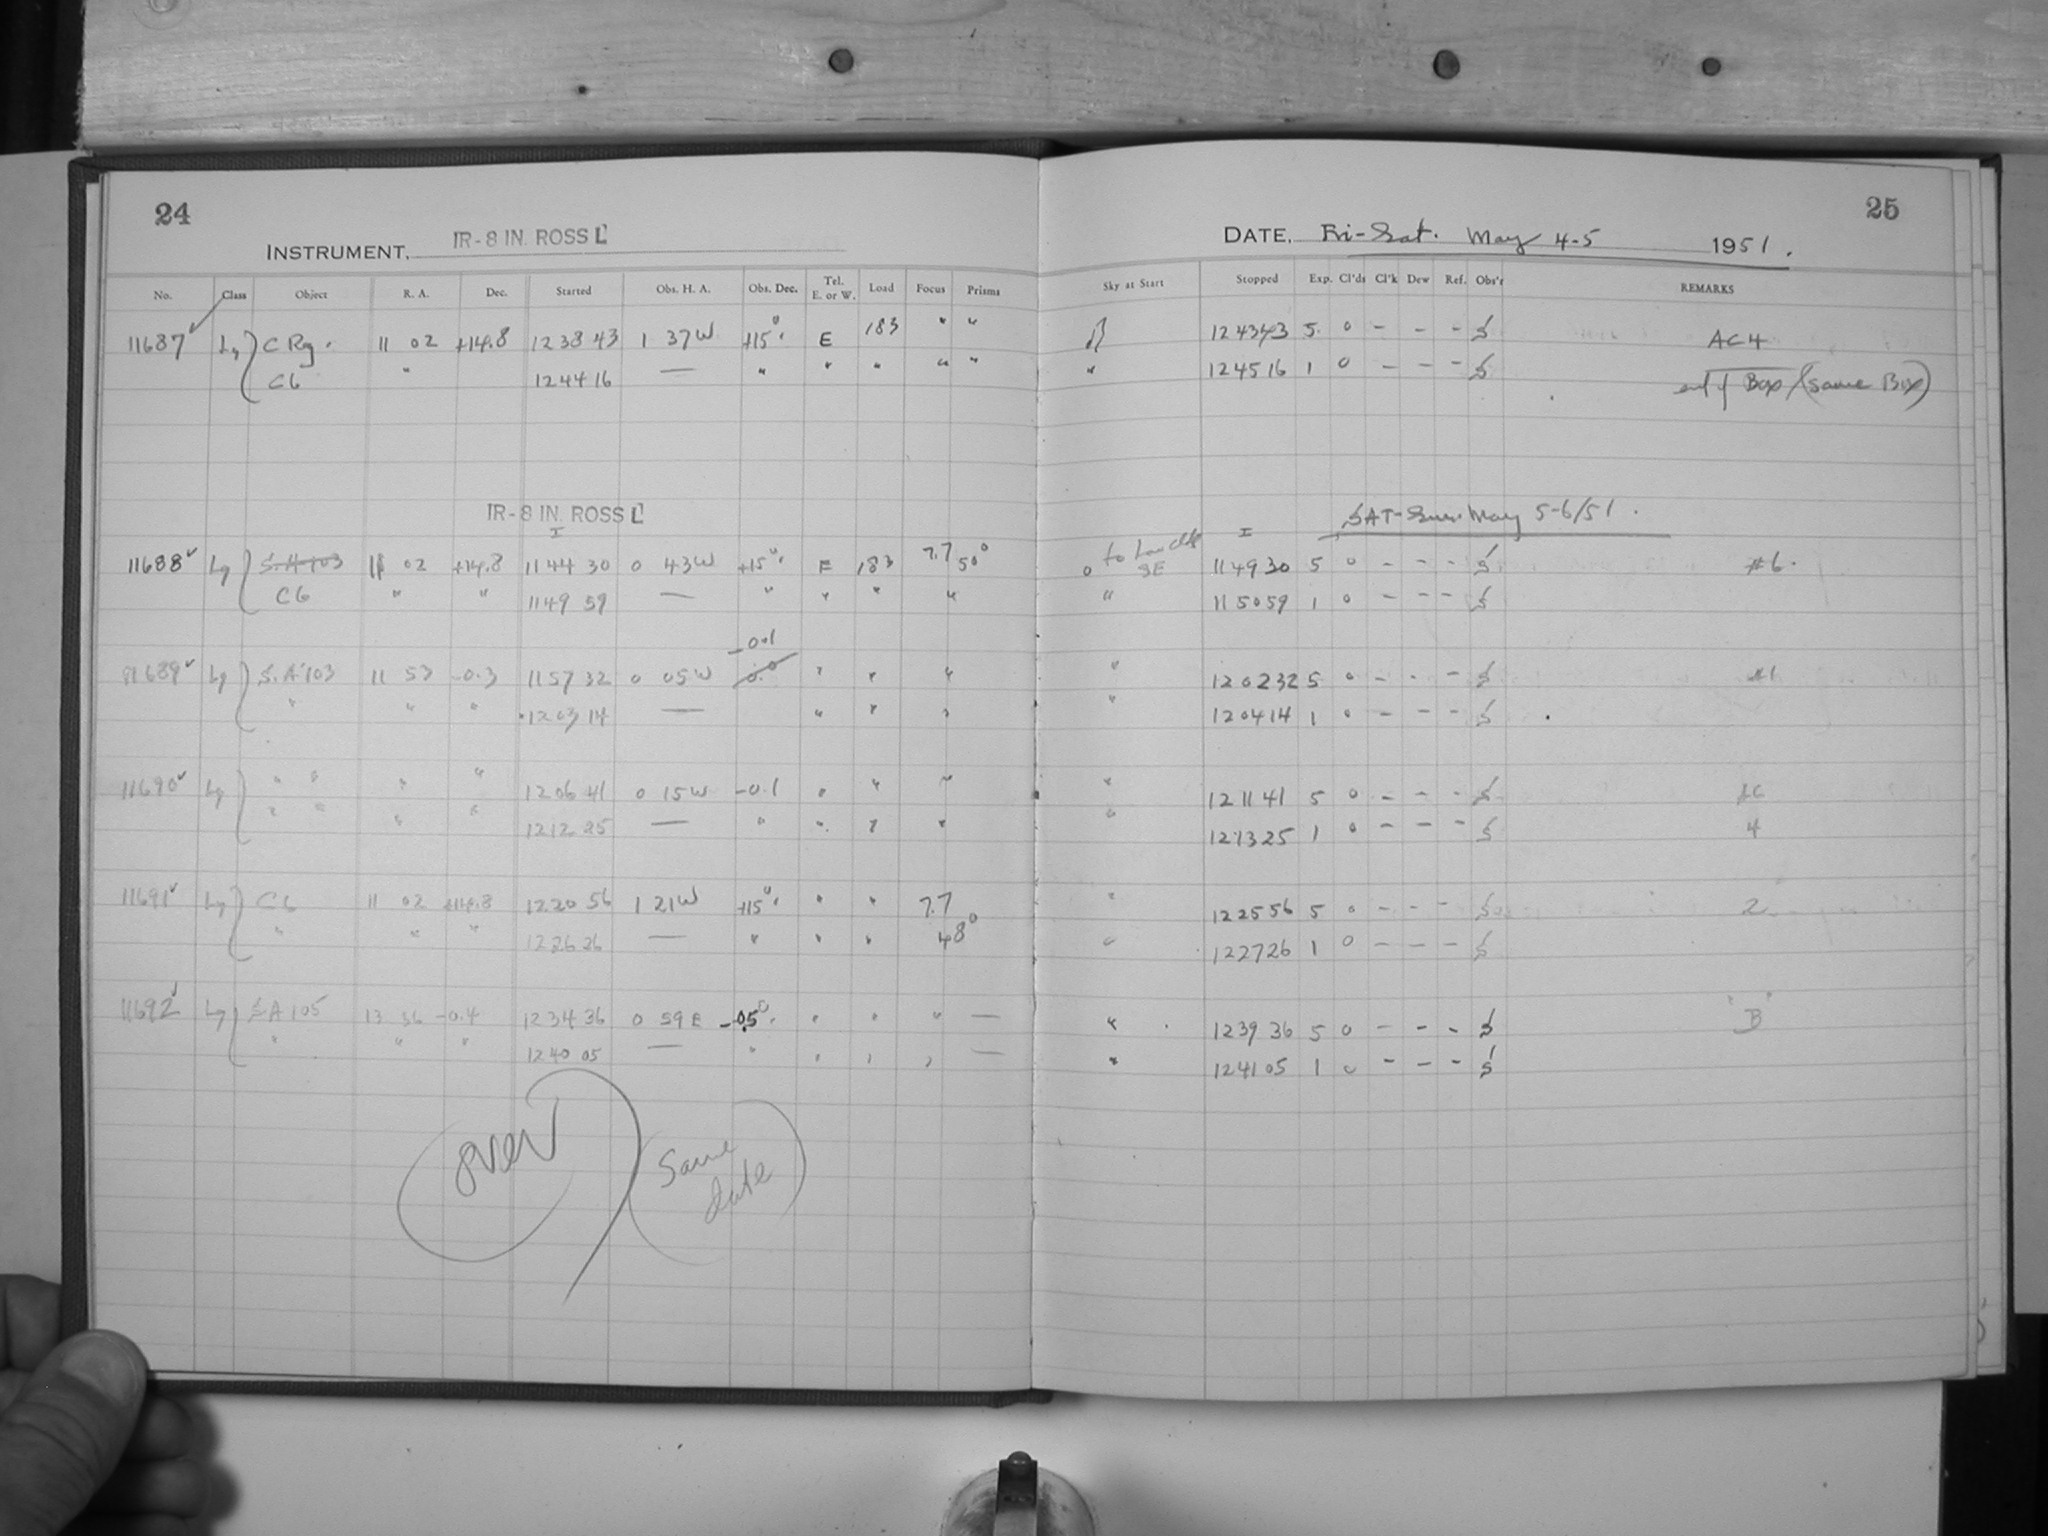 24
INSTRUMENT, IR-8 IN. ROSS L
No. Class Object R. A. Dec. Started Obs. H. A. Obs. Dec. Tel. E. or W. Load Focus Prisms
11687 Ly C Rg. 11 02 +14.8 12 38 43 1 37 W +15° E 183 " "
C6 " 12 44 16 — " " " " "
IR-8 IN. ROSS L
I
11688 Ly S.A 103 11 02 +14.8 11 44 30 0 43 W +15° E 183 7.7 50°
C6 " " 11 49 59 — " " " "
-0.1
11689 Ly S.A 103 11 53 -0.3 11 57 32 0 05 W 0.0 " " "
" " " 12 03 14 — " " "
11690 Ly " " " " 12 06 41 0 15 W -0.1 " " "
" " " " 12 12 25 — " " " "
11691 Ly C6 11 02 +14.8 12 20 56 1 21 W +15° " " 7.7
" " " 12 26 26 — " " " 48°
11692 Ly SA 105 13 36 -0.4 12 34 36 0 59 E -0.5° " " " —
" " " 12 40 05 — " " " " —
over
Same
date
25
DATE, Fri-Sat. May 4-5 1951.
Sky at Start Stopped Exp. Cl'ds Cl'k Dew Ref. Obs'r REMARKS
12 43 43 5 0 - - - S AC4
" 12 45 16 1 0 - - - S end of Box (same Box)
SAT-Sun. May 5-6/51.
I
0 to SE 11 49 30 5 0 - - - S #6.
" 11 50 59 1 0 - - - S
" 12 02 32 5 0 - - - S #1
" 12 04 14 1 0 - - - S
" 12 11 41 5 0 - - - S
" 12 13 25 1 0 - - - S 4
" 12 25 56 5 0 - - - S 2
" 12 27 26 1 0 - - - S
" 12 39 36 5 0 - - - S "B"
" 12 41 05 1 0 - - - S